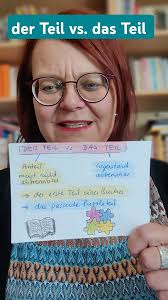 der Teil vs. das Teil
DER TEIL VS DAS TEIL
Anteil
meist nicht
Gegenstand
→ der erste Teil eines Buches
→ das passende Puzzleteil